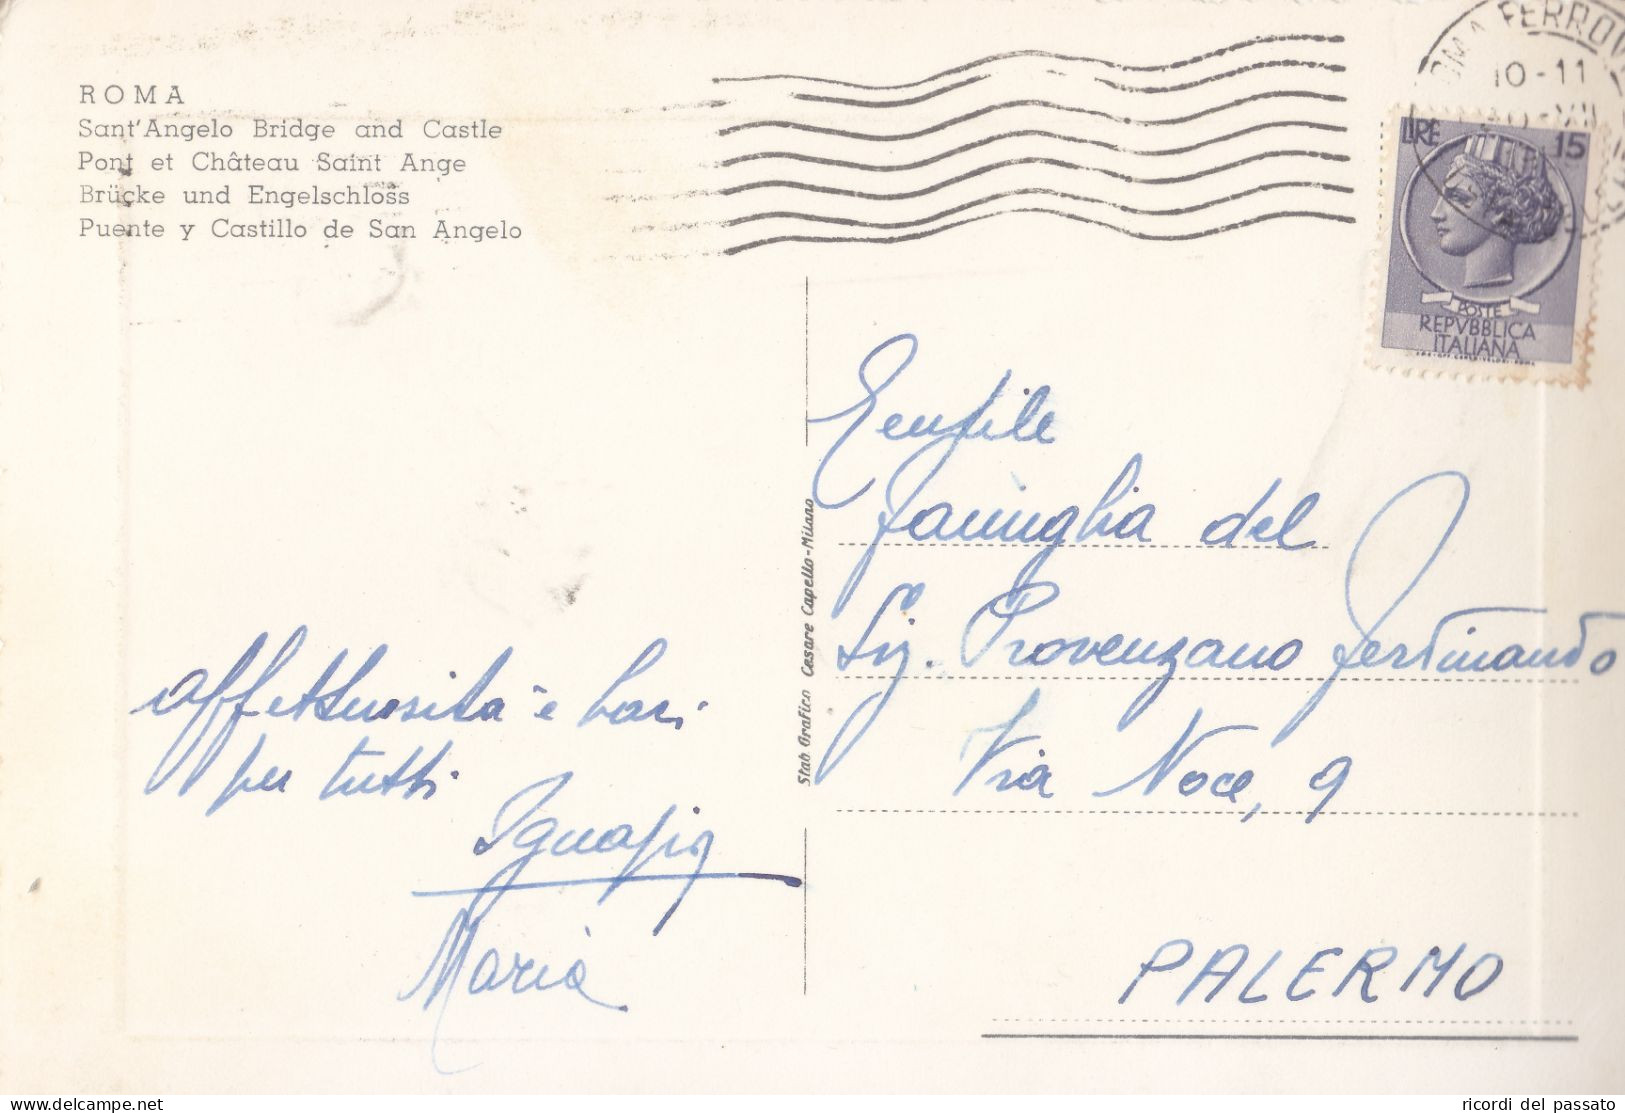 ROMA
Sant'Angelo Bridge and Castle
Pont et Château Saint Ange
Brücke und Engelschloss
Puente y Castillo de San Angelo
ROMA FERROV
10-11
LIRE 15
POSTE
REPVBBLICA
ITALIANA
Stab Grafico Cesare Capello-Milano
affettuosità e baci
per tutti
Ignazio
Maria
Gentile
famiglia del
Sig. Provenzano Ferdinando
Via Noce, 9
PALERMO
delcampe.net
ricordi del passato